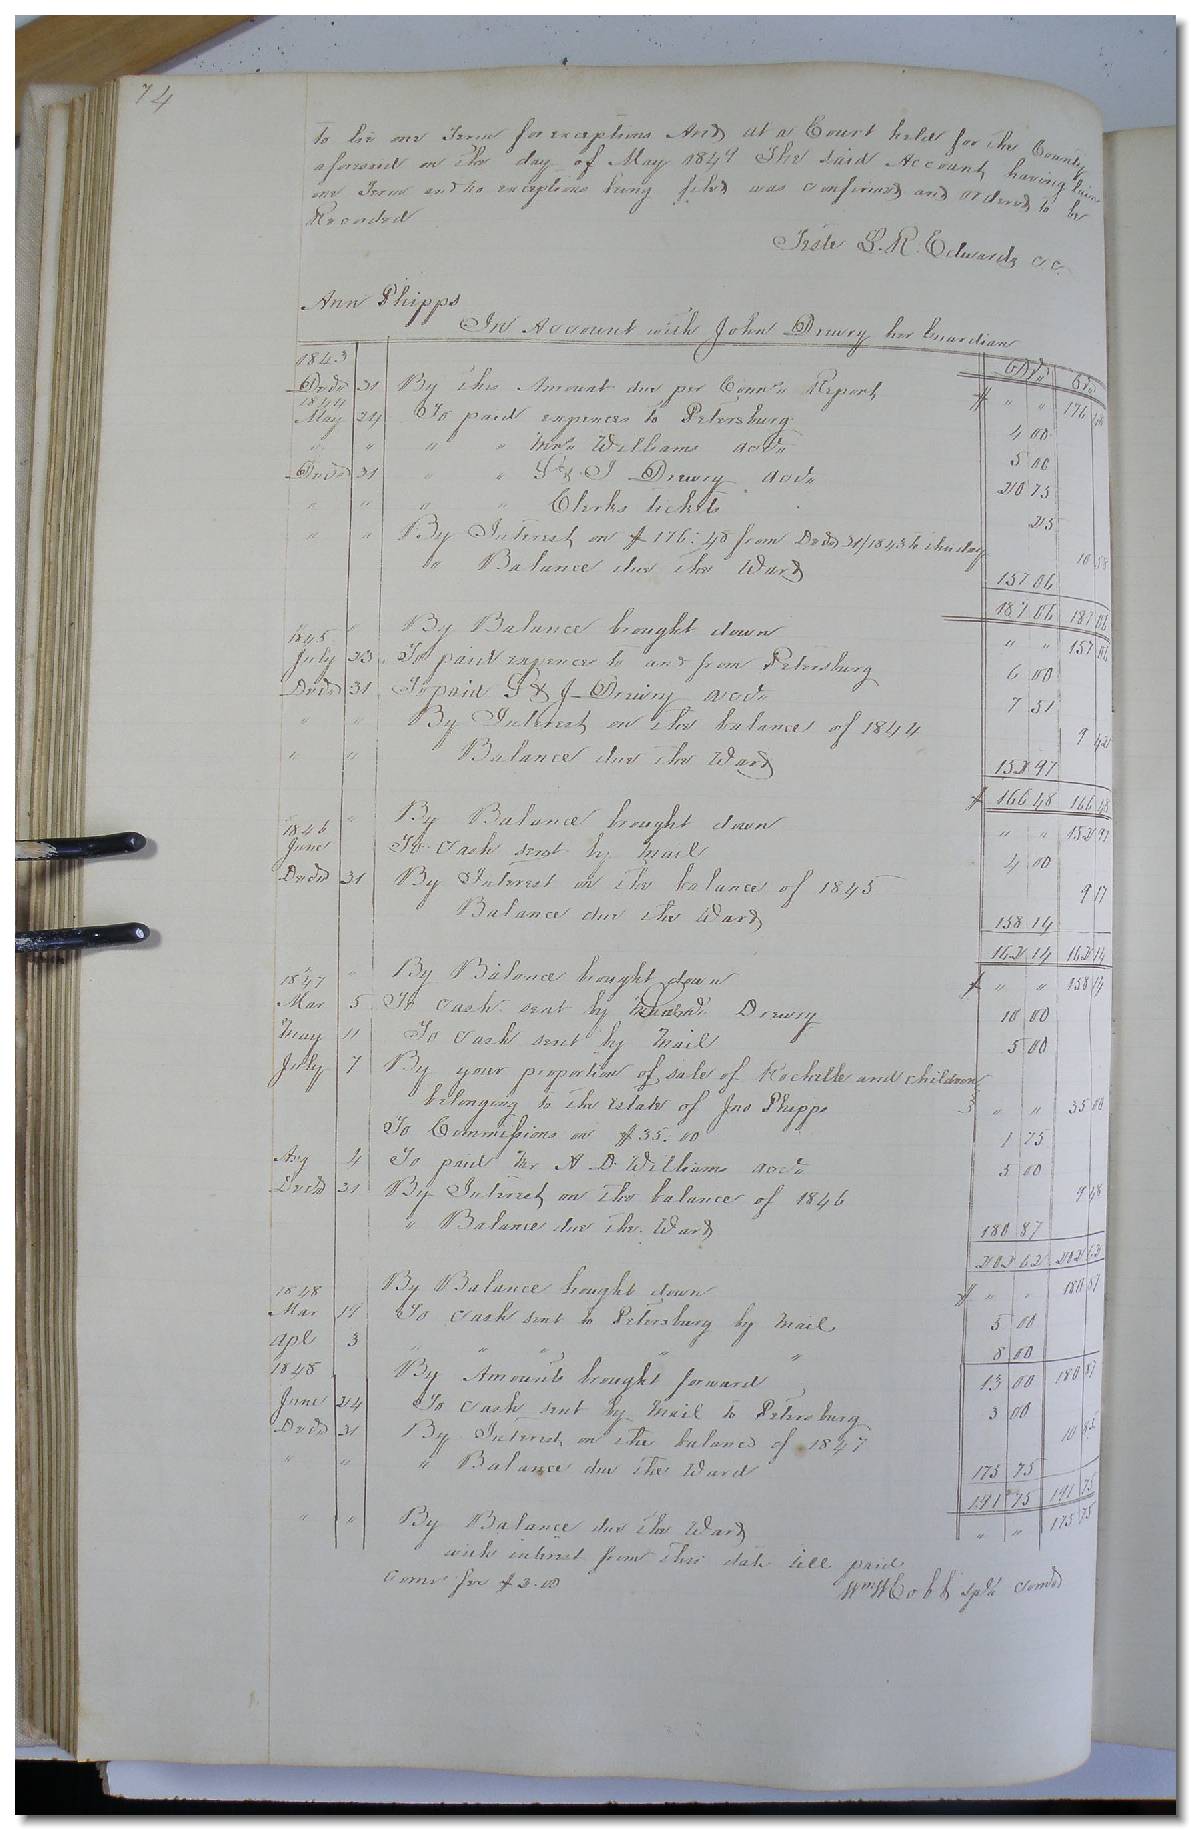 74
to lie one Term for exceptions And at a Court held for the County
aforesaid on the day of May 1849 The said Account having lain
one Term and no exceptions being filed was confirmed and ordered to be
Recorded
Teste L. R. Edwards C.C.
Ann Phipps
In Account with John Drury her Guardian
1843 Dr Cr
Decr 31 By this Amount due per Comrs Report $ " " 176 48
1844
May 24 To paid expences to Petersburg 4 00
" " " " Mrs Williams acct 5 00
Decr 31 " " S & J Drury acct 20 75
" " " " Clerks tickets 25
" " By Interest on $176.48 from Decr 31/1843 to this day 10 58
to Balance due the Ward 157 06
187 06 187 06
" By Balance brought down " " 157 06
1845
July 23 To paid expences to and from Petersburg 6 00
Decr 31 To paid S & J Drury acct 7 51
" " By Interest on the balance of 1844 9 42
" " Balance due the Ward 152 97
$ 166 48 166 48
" By Balance brought down " " 152 97
1846
June To Cash sent by mail 4 00
Decr 31 By Interest on the balance of 1845 9 17
Balance due the Ward 158 14
162 14 162 14
" By Balance brought down $ " " 158 14
1847
Mar 5 To Cash sent by Drury 10 00
May 11 To Cash sent by Mail 5 00
July 7 By your proportion of sale of Rochelle and children
belonging to the estate of Jno Phipps " " 35 00
To Commissions on $35.00 1 75
Aug 4 To paid Mr A D Williams acct 5 00
Decr 31 By Interest on the balance of 1846 9 48
" Balance due the Ward 180 87
202 62 202 62
By Balance brought down $ " " 180 87
1848
Mar 14 To Cash sent to Petersburg by Mail 5 00
Apl 3 " " " " " 8 00
1848 By Amounts brought forward 13 00 180 87
June 24 To Cash sent by Mail to Petersburg 3 00
Decr 31 By Interest on the balance of 1847 10 85
" " " Balance due the Ward 175 75
191 75 191 75
" " By Balance due the Ward " " 175 75
with interest from this date till paid
Comr fee $3.00 Wm W Cobb spl Comr